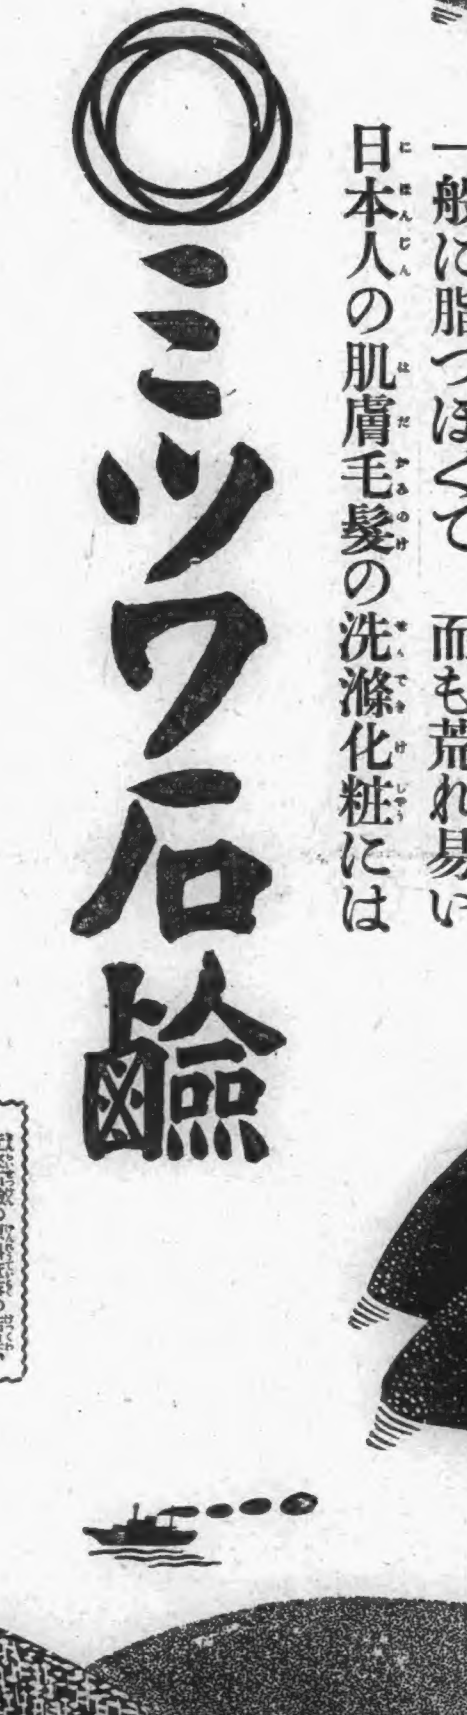 一般に脂つぽくて 而も荒れ易い
日本人の肌膚毛髮の洗滌化粧には
ミツワ石鹼